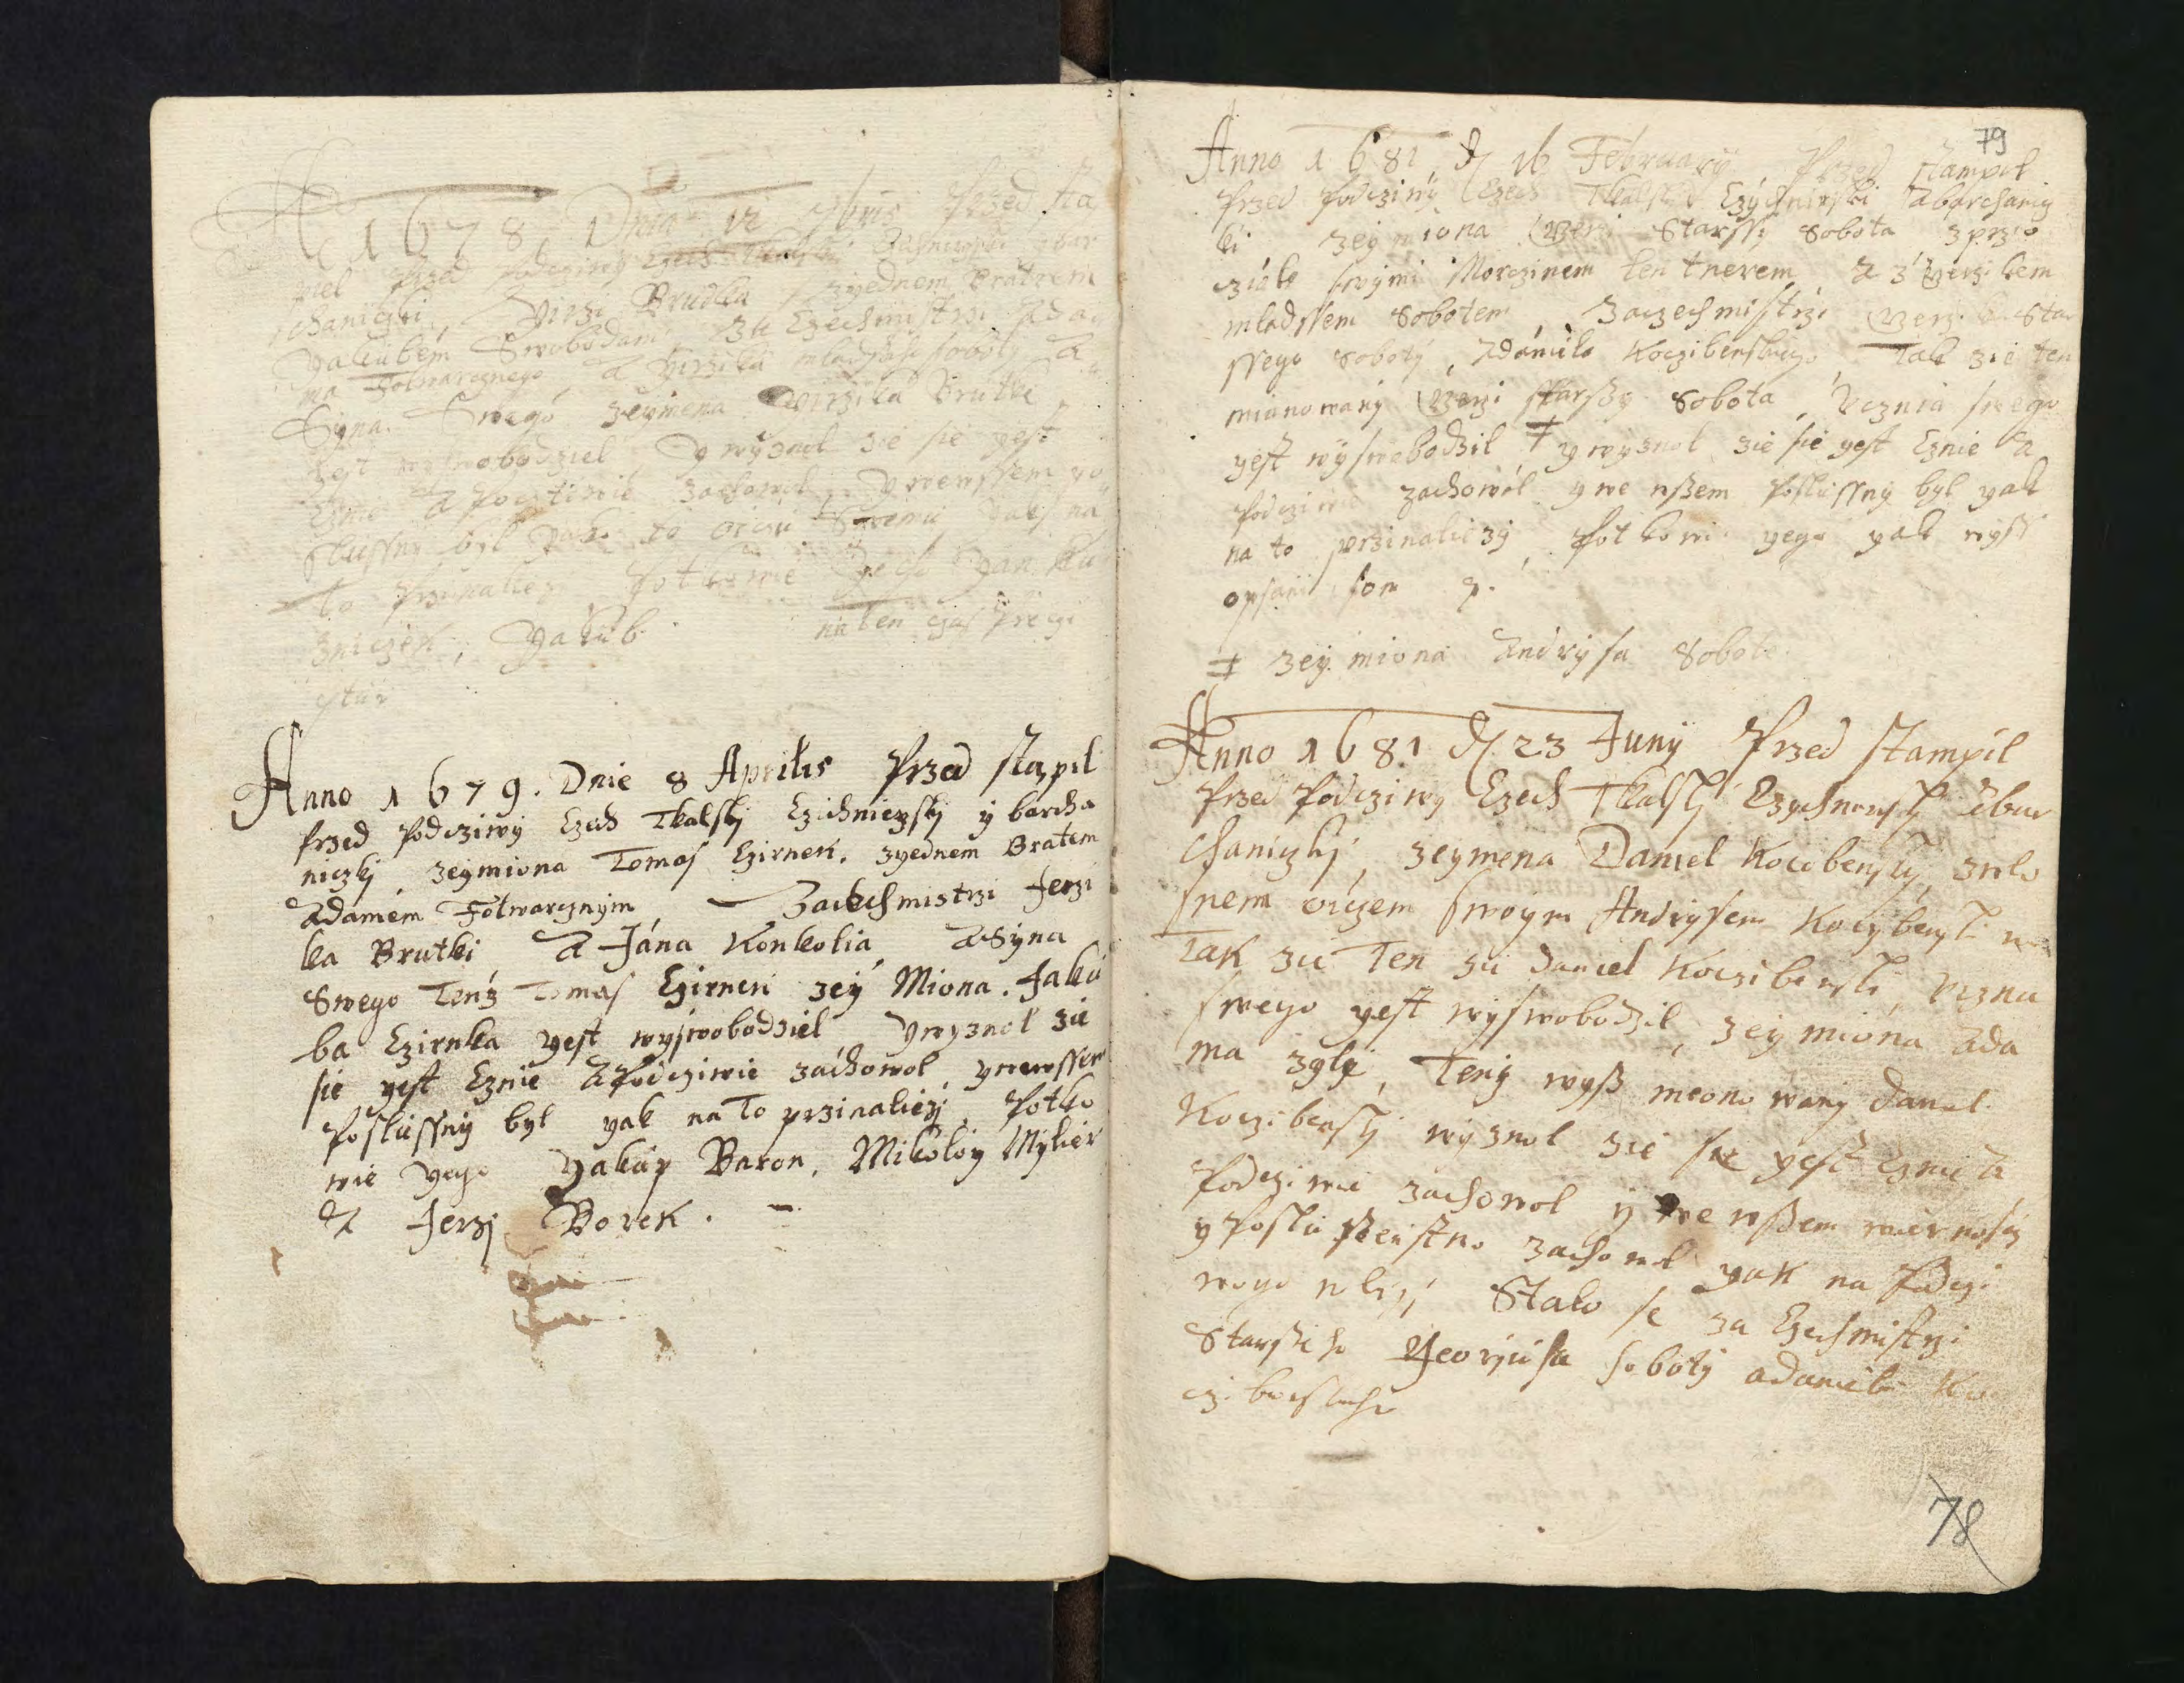 A 1678 Dnia 12 Przed sta
piel Przed Podcziwy Czech
rchaniczki, Yirzi Brudka zyednem Bratrem
Yakubem Swobodam, Za Czechmistrzi Ada
ma Folwarcznego A Yirzika mladsiho soboty A
Syna Swego zeymena Yirzika Brutki
yest wyswobodziel y wyznol zie sie yest
Cznie A Poczti­wie zachowol, y wewssem po
slussny byl yako to oiczu Swemu yaks na
to Przinalezy Potkowie Jeho Jan Ku
zniczek, Yakub na ten czas
Anno 1679. Dnie 8 Aprilis Przed stapil
Przed Podcziwy Czech Tkalsky Czichniezsky y barcha
niczky zeymiona Tomas Czirnek. zyednem Bratem
Adamem Folwarcznym, Zaczechmistrzi Jerzi
ka Brutki A Jána Konkolia A Syna
Swego Tenz Tomas Czirnek zey Miona. Jaku
ba Czirnka yest wyswobodziel ywyznol zie
sie yest Cznie A Podcziwie záchowol ywewssem
Poslussny byl yak na To przinaliezy, Potko
wie yego Yakup Baron, Mikoloy Mylier
A Jerzy Borek.
79
Anno 1681 D 16 February Przed stampil
Przed Podcziwy Czech Tkalsky Czychnirski Abarchanicz
ki zeymiona Yerzi Starssi Sobota zprzo
cziele swymi Morczinem lentnerem, A z Yerzikem
mladssem Sobotem, Zaczechmistrzi Yerzika Star
ssego Soboty, Adániela Koczibenskiego, Tak zie ten
mianowany Yerzi starssy Sobota, Ucznia swego
yest wyswobodzil ‡ y wyznol zie sie yest Cznie A
Podcziwie zachowol y we wssem Poslussny byl yak
na to przinaliezy, Potkowi yego yak wyss
opsani som p.
‡ zey miona Andrysa Sobote
Anno 1681 D 23 Juny Przed stampil
Przed Podcziwy Czech Tkalsky Czychnersky Abar
chaniczky, zeymena Daniel Kocibensky, zwlo
snem oiczem swoym Andrysem Kocybensk
Tak zie Ten zie Daniel Koczibenski, Uczna
swego yest wyswobodzil, zey miona Ada
ma zgly, Teny wyss meonowany Daniel
Koczibensky wyznol zie sie yest Cznie A
Podcziwie zachowol y we wssem wiernosczi
y Poslussenstwo zachowol yak na Podczi
wego nlizy Stalo se za Czechmistrzi
Starssiho Georjusa Soboty adaniela Ko
czibenskeho
78